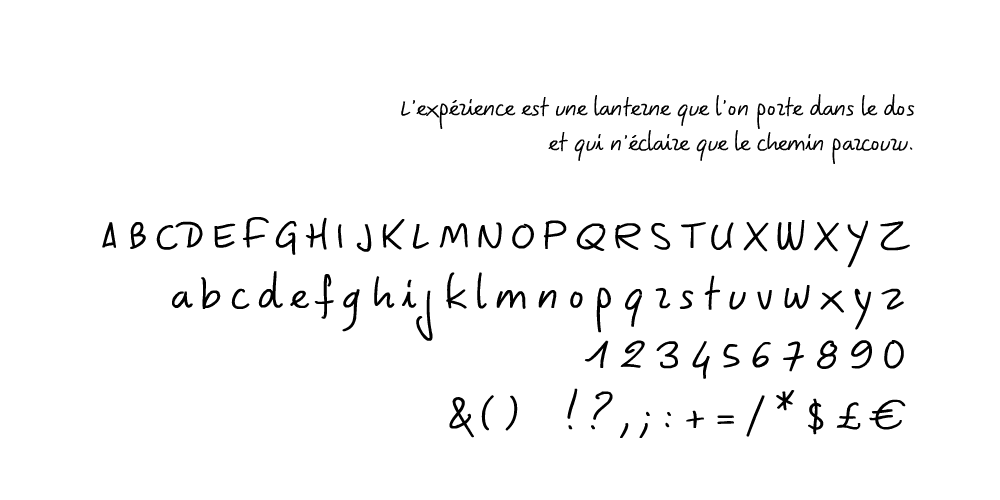 L'expérience est une lanterne que l'on porte dans le dos
et qui n'éclaire que le chemin parcouru.
A B C D E F G H I J K L M N O P Q R S T U X W X Y Z
a b c d e f g h i j k l m n o p q r s t u v w x y z
1 2 3 4 5 6 7 8 9 0
& ( ) ! ? , ; : + = / * $ £ €